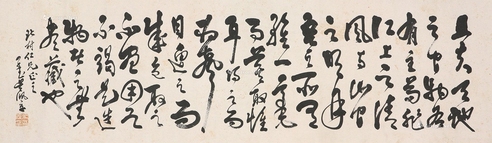 且夫天地
之間物各
有主苟非
江上之清
風與山間
之明月
吾之所有
雖一毫
而莫取惟
耳得之而
為聲
目遇之而
成色取之
不盡用之
不竭是造
物者之無
盡藏也
仁兄正之